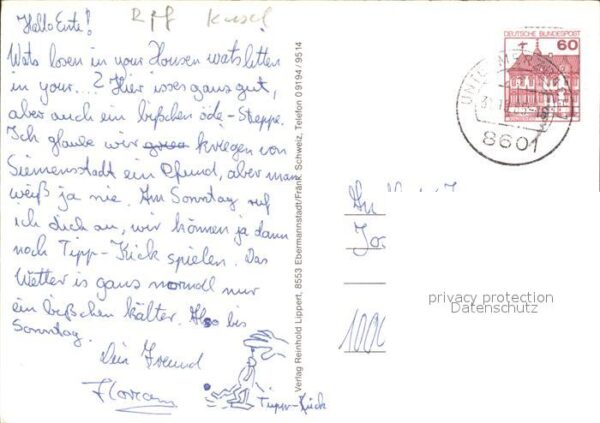 Hallo Ente!
Wats losen in your Housen wats letten
in your...? Hier isses ganz gut,
aber auch ein bißchen öde-Steppe.
Ich glaube wir kriegen von
Siemensstadt ein Pfund, aber man
weiß ja nie. Am Sonntag ruf
ich dich an, wir können ja dann
noch Tipp-Kick spielen. Das
Wetter is ganz normoll nur
ein bißchen kälter. Also bis
Sonntag.
Dein Freund
Florian
Tipp-Kick
Verlag Reinhold Lippert, 8553 Ebermannstadt/Fränk. Schweiz, Telefon 09194/9514
DEUTSCHE BUNDESPOST
60
8601
An
privacy protection
Datenschutz